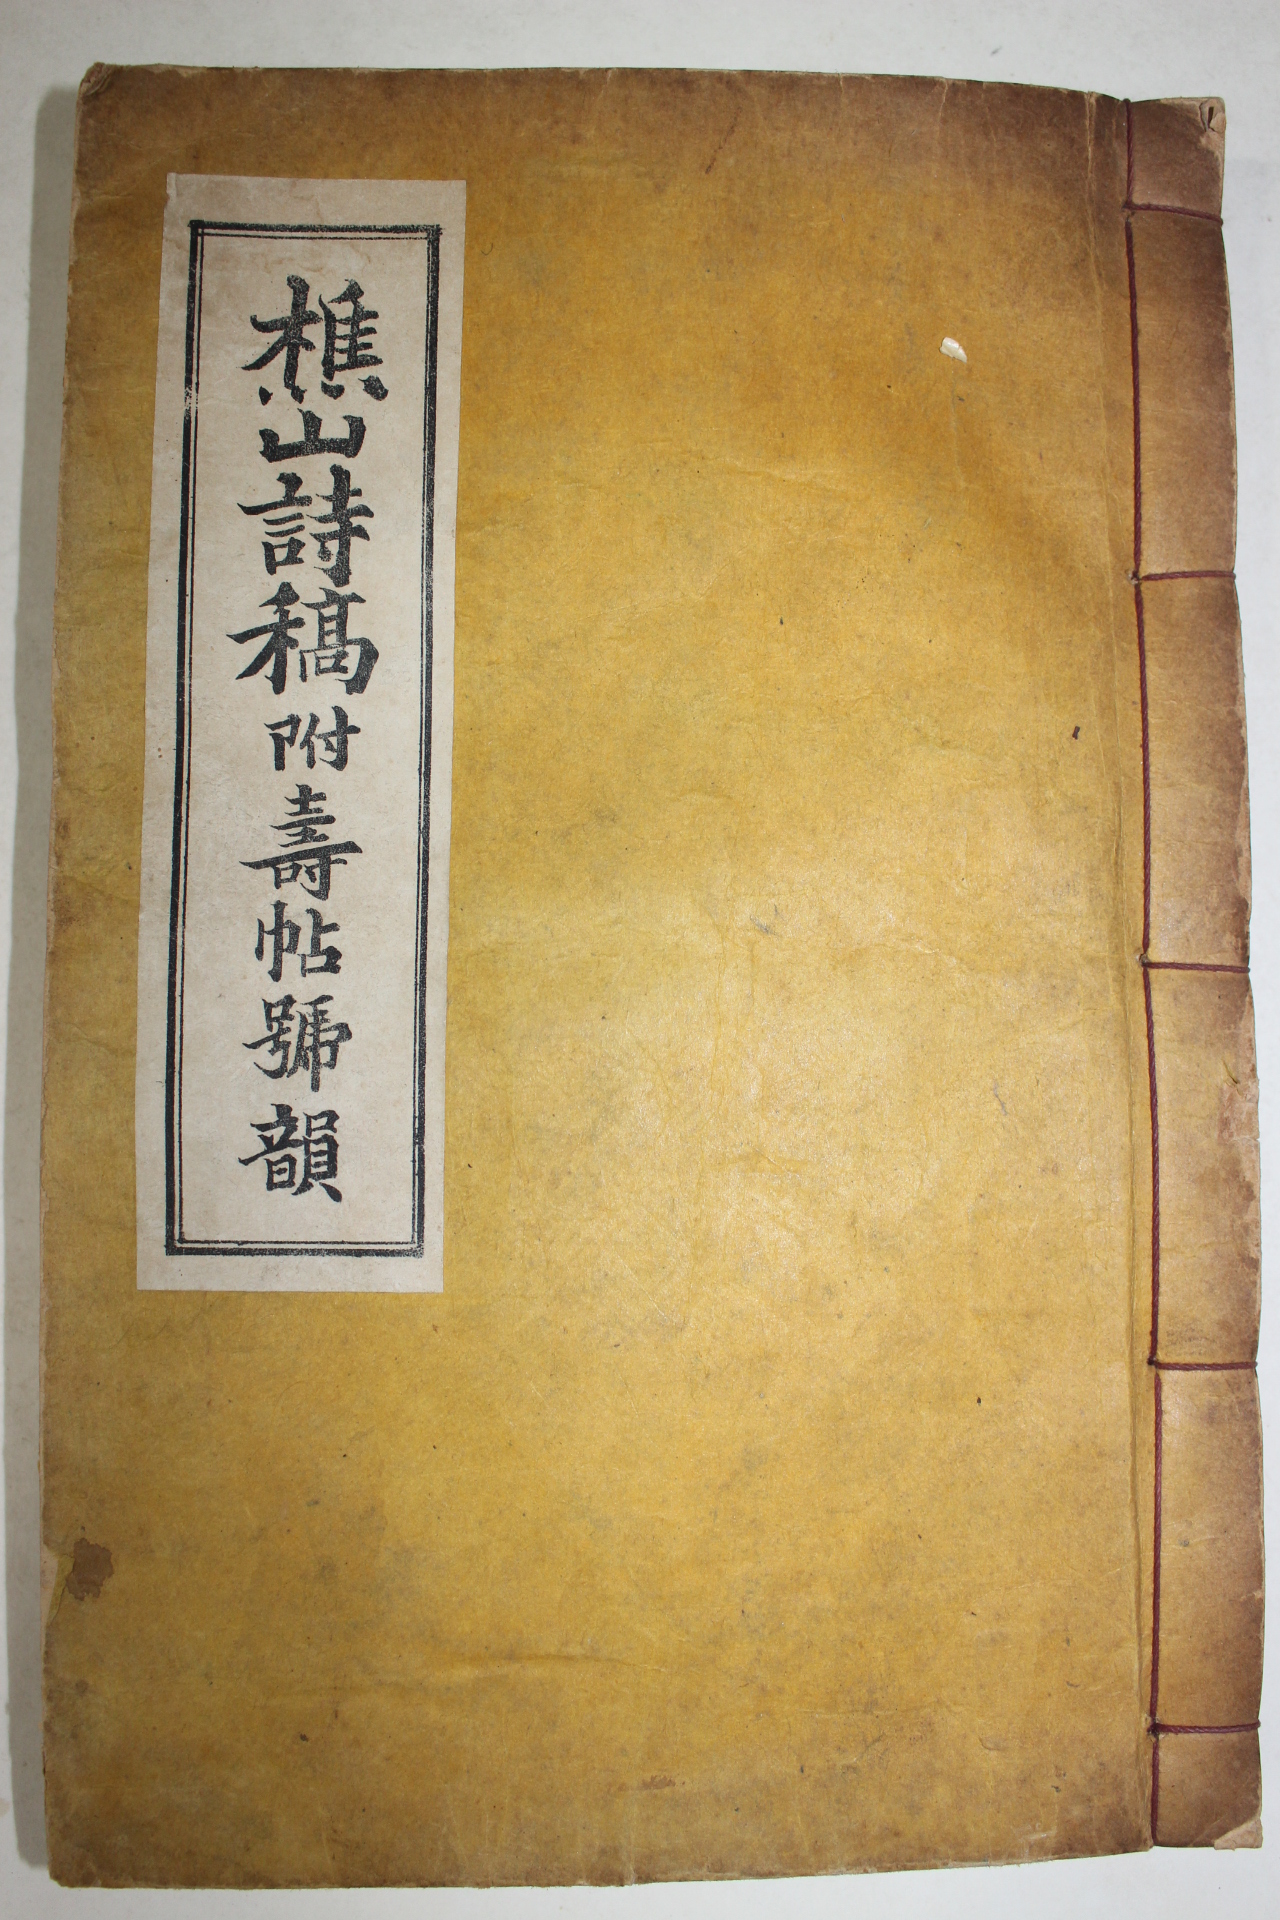 樵山詩稿附壽帖號韻